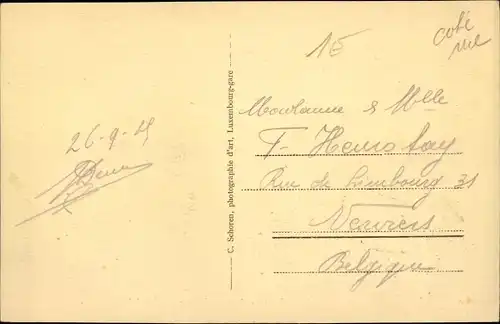 15
coté
vue
26-9-25
C. Schoren, photographie d'art, Luxembourg-gare
Madame & Mlle
F. Hemstay
Rue de Limbourg 31
Verviers
Belgique